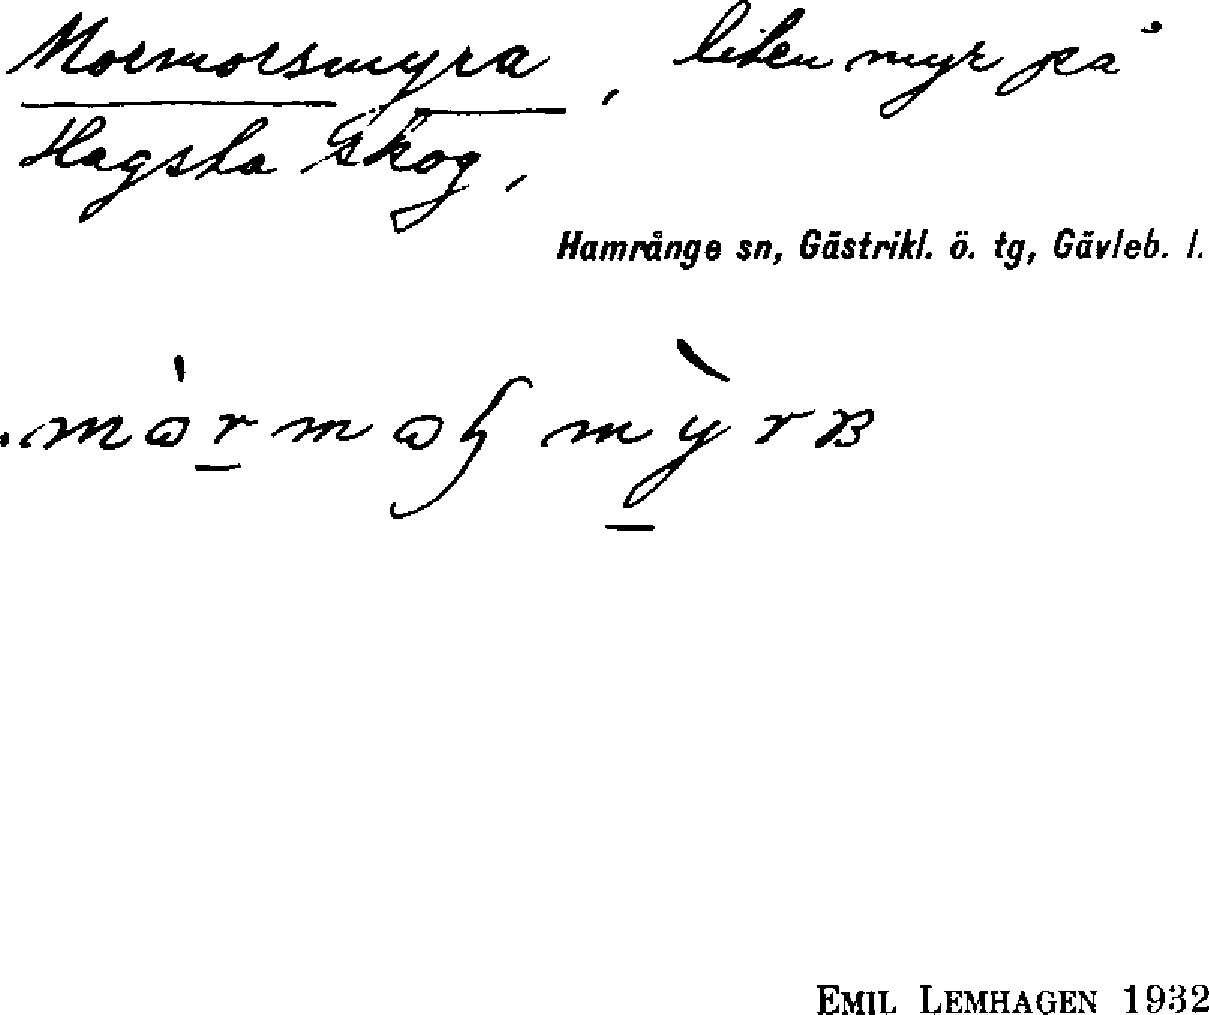 Mormorsmyra, liten myr på
Hagsta skog,
Hamrånge sn, Gästrikl. ö. tg, Gävleb. l.
EMIL LEMHAGEN 1932